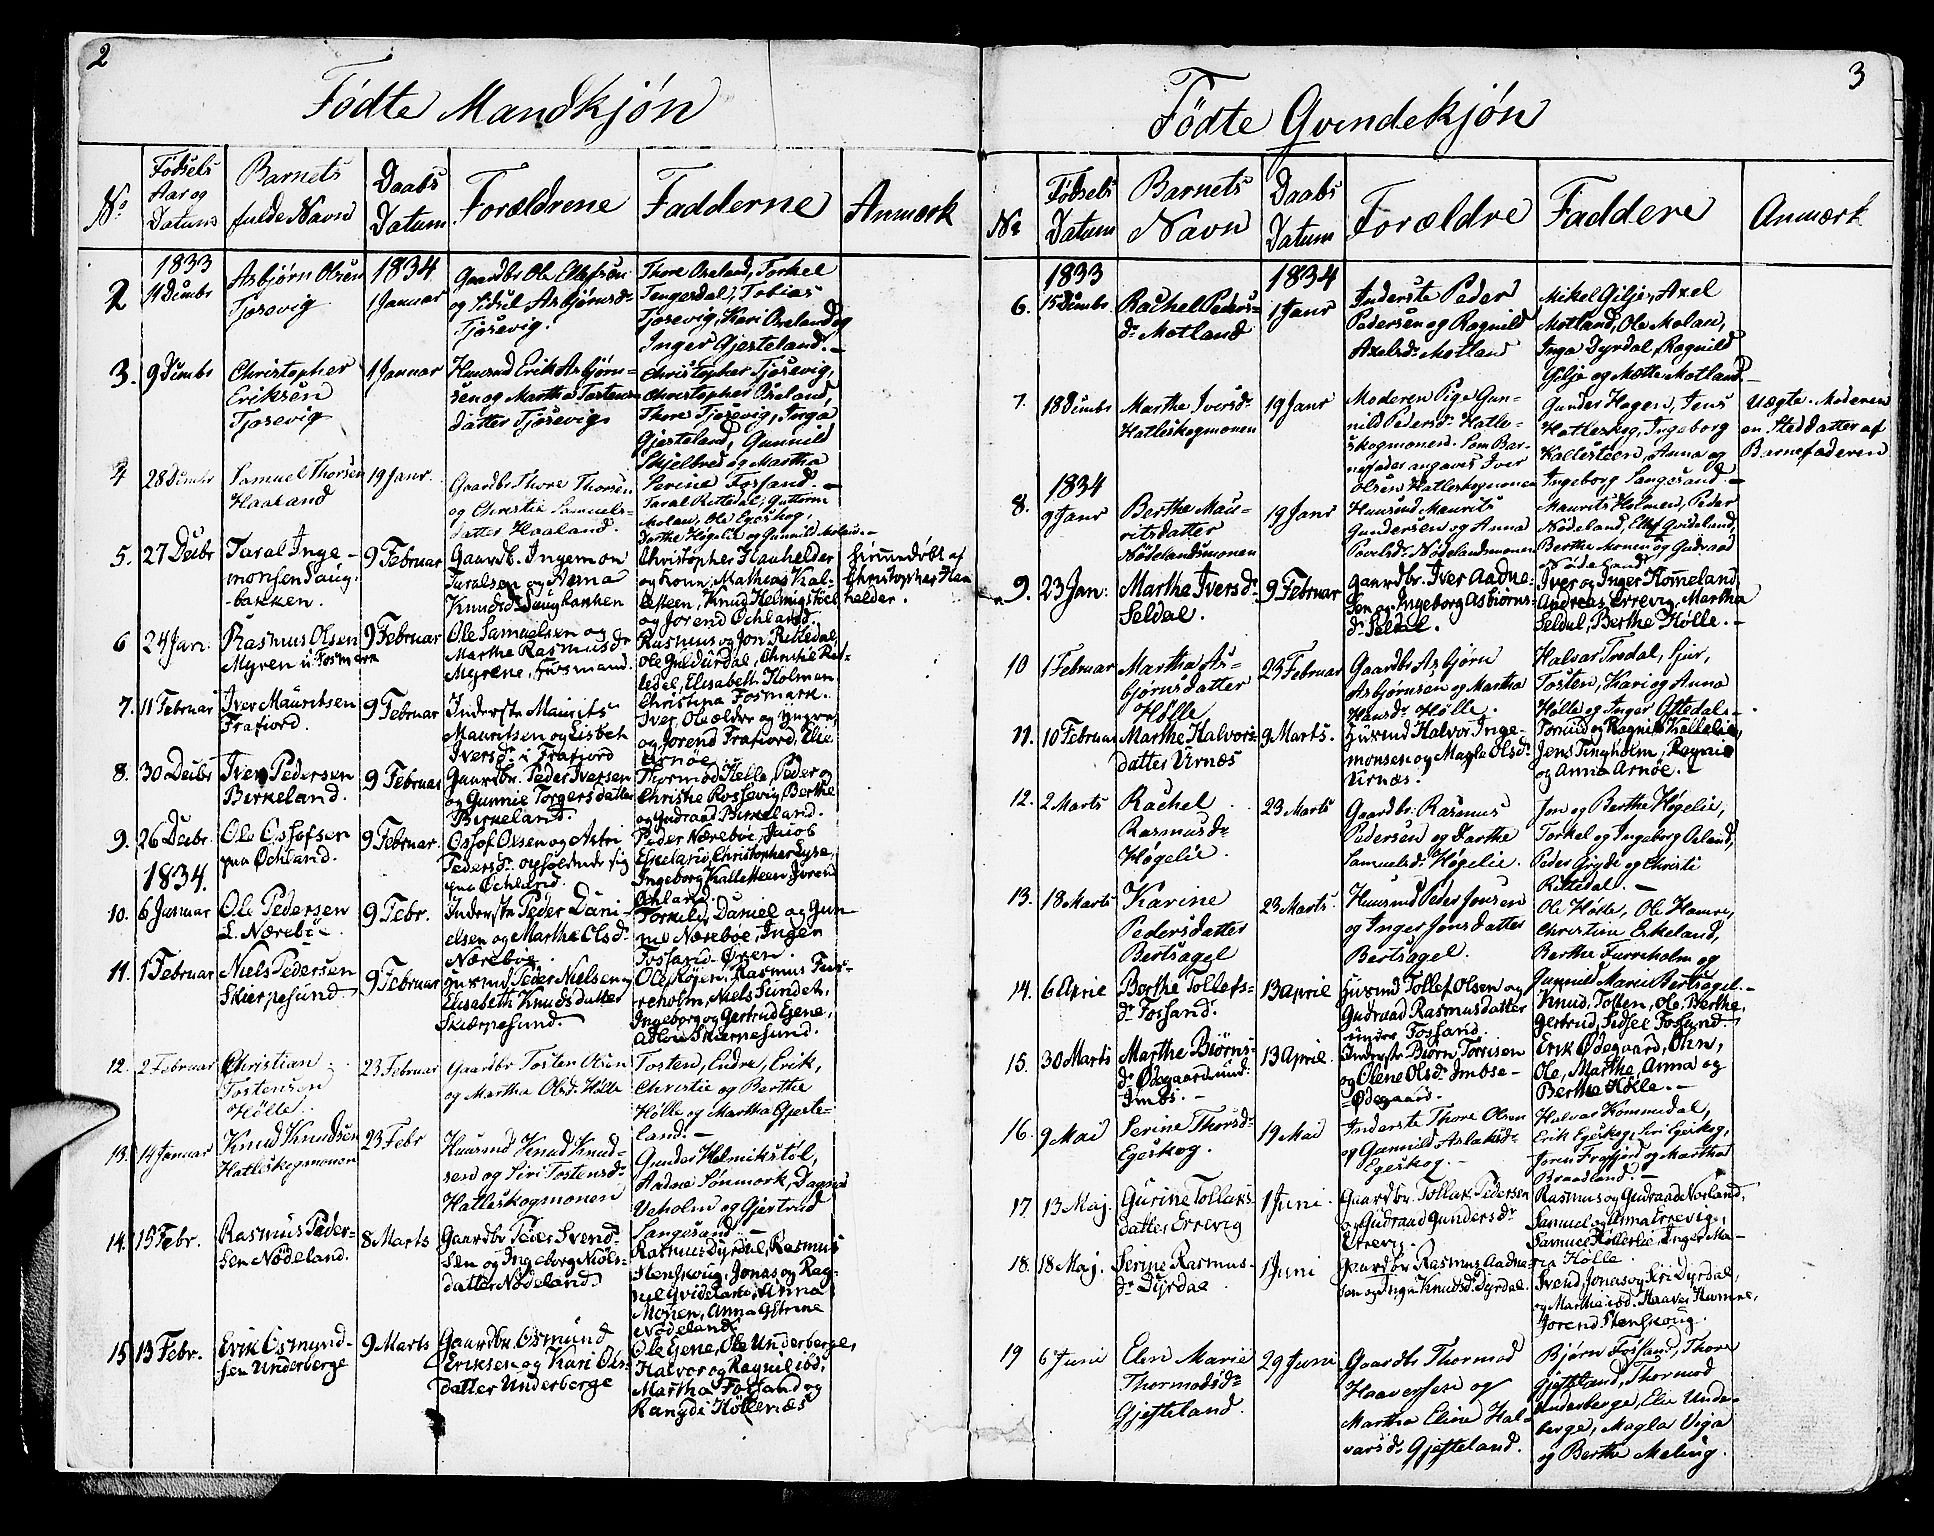 2
Fødte Mandkjøn
No
Fødsels
Aar og
Datum
Barnets
fulde Navn
Daabs
Datum
Forældrene
Fadderne
Anmærk
1833
1834
2
Asbjørn Olsen
Tjosevig
1 Januar
Gaardbr. Ole Ellefsen
og Sidsel Asbjørnsdr
Tjosevig.
Thore Øreland, Torkel
Tengesdal, Tobias
Tjosevig, Kari Øreland og
Inger Gjesteland.
3.
9 Dcmbr
Christopher
Eriksen
Tjosevig
1 Januar
Huusmd Erik Asbjørn-
sen og Martha Tostens-
datter Tjosevig
Christopher Tjosevig,
Christopher Øreland,
Thore Tjosevig, Inga
Gjesteland, Gunnild
Skjelbred og Martha
Serine Fossand.
4
28 Dcmbr
Samuel Thorsen
Haaland
19 Janr.
Gaardbr. Thore Thorsen
og Christie Samuels-
datter Haaland.
Taral Rettedal, Guttorm
Molau, Ole Egeskog,
Dorthe Høgelie og Gunnild Molau.
5.
27 Decbr
Taral Inge-
monsen Haug-
bakken.
9 Februar
Gaardb. Ingemon
Taralsen og Anna
Knudsdr Haugbakken
Christopher Hauhelder
og kone, Mathias Kal-
lesteen, Knud Helmigstøel
og Jorend Øchland.
Hiemmedøbt af
Christopher Hau
helder.
6
24 Jan.
Rasmus Olsen
Myren u. Fosmark
9 Februar
Ole Samuelsen og
Marthe Rasmusdr
Myrene, Fosmand.
Rasmus og Jon Rettedal
Ole Guldurdal, Christie Ret-
tedal, Elisabeth Holmen
Christina Fosmark.
7.
11 Februar
Iver Mauritsen
Frafiord.
9 Februar
Inderste Maurits
Mauritsen og Lisbet
Iversdr i Frafiord
Iver, Ole ældre og yngre,
og Jorend Frafiord, Elie
Arnøe
8.
30 Decbr
Iver Pedersen
Birkeland.
9 Februar
Gaardbr. Peder Iversen
og Gunnie Torgersdatter
Birkeland.
Thormod Helle, Peder og
Christie Rossevig, Berthe
og Gudraad Birkeland.
9.
26 Decbr
Ole Ossofsen
paa Øchland.
9 Februar.
Ossof Olsen og Astri
Pedersdr opholdende sig
paa Øchland.
Peder Nærebøe, Jacob
Eskelarie, Christopher Lyse,
Ingeborg Kallesteen, Jorend
Ochland.
1834.
10.
6 Januar
Ole Pedersen
L. Nærebö
9 Febr.
Inderste Peder Dani-
elsen og Martha Olsdr
Nærebøe.
Torkild, Daniel og Gun-
nie Nærebøe, Inger
Fossand-Øren.
11.
1 Februar
Niels Pedersen
Skierpesund.
9 Februar
Huusmd Peder Nielsen og
Elisabeth Knudsdatter
Skiærpesund.
Ole Røjen, Rasmus Fur-
reholm, Niels Sundet,
Ingeborg og Gertrud Eiene,
Adlou Skierpesund.
12.
2 Februar
Christian
Tostensen
Hølle
23 Februar
Gaardbr Tosten Olsen
og Martha Olsdr Hølle
Tosten, Endre, Erik,
Christie og Barthe
Hølle og Martha Gjeste-
land.
13.
14 Januar
Knud Knudsen
Hatleskogmonen
23 Febr
Huusmd Knud Knud-
sen og Siri Tostensdr
Hatleskogmonen
Gunder Helmikstøl,
Aadne Sønmork, Dagni
Veholm og Gjertrud
Sangesand.
14.
15 Febr.
Rasmus Peder-
sen Nödeland.
8 Marts
Gaardbr Peder Svend-
sen og Ingeborg Niels-
datter Nödeland.
Rasmus Dyrdal, Rasmus
Stenskoug, Jonas og Rag-
nil Qvideland, Anna
Monen, Anna Gurine
Nödeland
15
13 Febr.
Erik Osmund-
sen Underberge
9 Marts
Gaardbr. Osmund
Eriksen og Kari Ols-
datter Underberge
Ole Eiene, Ole Underberge,
Halvor og Ragnil ibd,
Martha Fossand og
Rangdi Höllenæs
3
Fødte Qvindekjøn
No
Fødsels
Datum
Barnets
Navn
Daabs
Datum
Forældre
Faddere
Anmærk
1833
1834
6.
15 Dcmbr
Rachel Peders-
dr Motland
1 Janr
Inderste Peder
Pedersen og Ragnild
Axelsdr Motland
Mikel Gilje, Axel
Motland, Ole Molau,
Inga Dyrdal, Ragnild
Gilje og Mætte Motland.
7.
18 Dcmbr
Marthe Iversdr
Hatleskogmonen
19 Janr
Moderen Pige Gun-
nild Pedersdr Hatle-
skogmonen. Som Bar-
nefader angaves Iver
Olsen Hatleskogmonen
Gunder Hagen, Jens
Hatleskog, Ingeborg
Kallesteen, Anna og
Ingeborg Sangesand.
Uægte. Moderen
en Steddatter af
Barnefaderen
1834
8.
9 Janr
Berthe Mau-
ritsdatter
Nødelandsmonen
19 Janr
Huusmd Maurits
Gundersen og Anna
Povelsdr Nødelandsmonen
Maurits Holmen, Peder
Nødeland, Ellef Qvideland,
Berthe Monen og Gudraad
Nødeland
9.
23 Jan.
Marthe Iversdr
Seldal.
9 Februar
Gaardbr. Iver Aadne-
sen og Ingeborg Asbiørns-
dr Seldal.
Iver og Inger Hommeland,
Andreas Errevig, Martha
Seldal, Berthe Hølle.
10
1 Februar
Martha As-
bjørnsdatter
Hølle
23 Februar
Gaardbr Asbjørn
Asbjørnsen og Martha
Hansdr Hølle.
Halvar Tredal, Siur,
Tosten, Kari og Anna
Hølle og Inger Ottedal.
11.
10 Februar
Marthe Halvors-
datter Virnæs
9 Marts.
Huusmd Halvor Inge-
monsen og Magle Olsdr
Virnæs.
Torniid og Ragnil Kallelie,
Jens Tingholm, Ragnie
og Anna Arnøe.
12.
2 Marts
Rachel
Rasmusdr
Høgelie
23 Marts
Gaardbr. Rasmus
Pedersen og Dorthe
Samuelsdr Høgelie.
Jon og Berthe Høgelie,
Torkel og Ingeborg Øeland,
Peder Gryde og Christi
Rettedal.
13.
18 Marts
Karine
Pedersdatter
Bertsagel
23 Marts.
Huusmd Peder Jonsen
og Inger Jonsdatter
Bertsagel.
Ole Hølle, Ole Hamre,
Christian Eikeland,
Berthe Furreholm og
Gunnild Marie Bertsagel.
14.
6 April
Berthe Tollefs-
dr Fossand.
13 April
Husmd Tollef Olsen og
Gudraad Rasmusdatter
under Fossand.
Knud, Tosten, Ole, Berthe,
Gertrud, Sidsel Fossand.
15.
30 Marts
Marthe Biørns-
dr Ødegaard und.
Imbs.
13 April
Inderste Biørn Torrisen
og Olene Olsdr Imbse-
Ødegaard.
Erik Ødegaard, Ohn,
Ole, Marthe, Anna og
Berthe Hølle.
16.
9 Mai
Serine Thorsdr
Egeskog.
19 Mai
Inderste Thore Olsen
og Gunnild Aslaksdr
Egeskog.
Halvar Kommedal,
Erik Egeskog, Siri Egeskog,
Jøren Frafjord og Martha
Braadland.
17.
13 Maj.
Gurine Tollaks-
datter Errevig
1 Juni
Gaardbr. Tollak Pedersen
og Gudraad Gundersdr
Errevig.
Rasmus og Gudraad Norland,
Samuel og Anna Errevig,
Samuel Hölleslie, Inger Ma-
ria Hölle.
18.
18 Maj.
Serine Rasmus-
dr Dyrdal
1 Juni
Gaardbr Rasmus Aadne-
sen og Inga Knudsdr Dyrdal
Svend, Jonas og Siri Dyrdal,
og Martha ibd. Haaver Hamre,
Jorend Stenskoug.
19
6 Juni
Elen Marie
Thormodsdr
Gjesteland.
29 Juni
Gaardbr Thormod
Haaversen og
Martha Eline Hal-
varsdr Gjesteland.
Bjørn Fossand, Thore
Gjesteland, Thormod
Underberge, Elie Under-
berge, Magla Viga
og Berthe Meling.